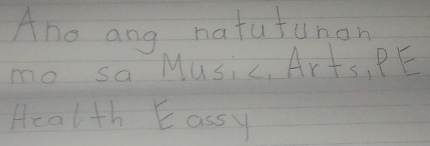 Ano ang natutunan
mo sa Music, Arts, PE
Health Eassy